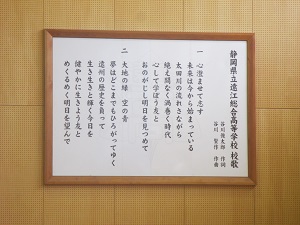 静岡県立遠江総合高等学校 校歌
谷川俊太郎 作詞
谷川賢作 作曲
一 心澄ませて志す
未来は今から始まっている
太田川の流れさながら
絶え間なく渦巻く時代
心して学ぼう友と
おのがじし明日を見つめて
二 大地の緑 空の青
夢はどこまでもひろがってゆく
遠州の歴史を負って
生き生きと輝く今日を
健やかに生きよう友と
めくるめく明日を望んで